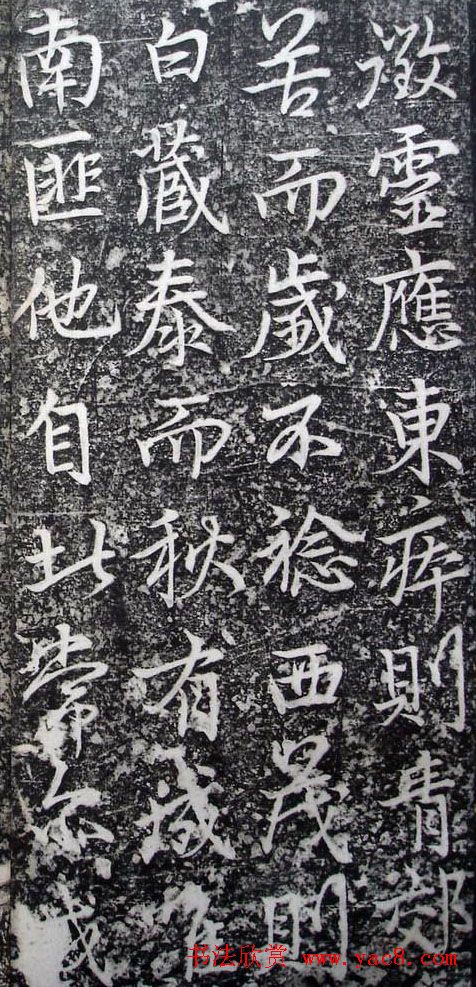 徵靈應東瘁則青郊
苦而歲不稔西晟則
白藏泰而秋有成
南匪他自北常尔或
书法欣赏 www.yac8.com